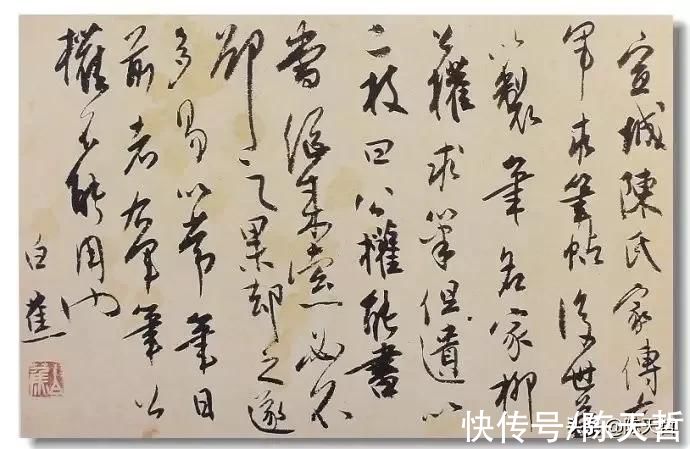 宣城陳氏家傳右
軍求筆帖後世益
以製筆名家柳
公權求筆但遺以
二枝曰公權能書
當繼來索必不
卻之果却之遂
多易以常筆曰
前者右軍筆公
權不能用也
白蕉
快传号/陈天哲